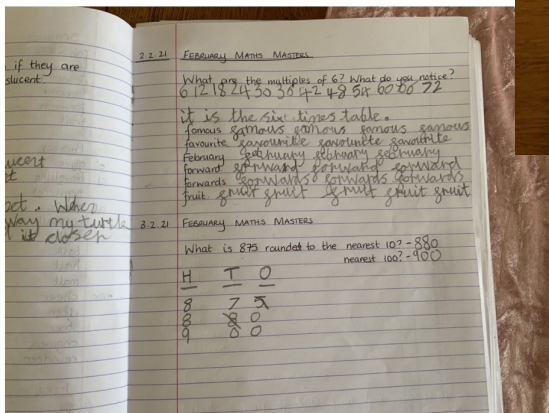 if they are
slucent.
ucert
t
pet. When
Way my turtle
it closer
2.2.21 FEBRUARY MATHS MASTERS
What are the multiples of 6? What do you notice?
6 12 18 24 30 36 42 48 54 60 66 72
it is the six times table.
famous famous famous famous famous
favourite favourite favourite favourite
february february february february
forward forward forward forward
forwards forwards forwards forwards
fruit fruit fruit fruit fruit fruit
3.2.21 FEBRUARY MATHS MASTERS
What is 875 rounded to the nearest 10? - 880
nearest 100? - 900
H T O
8 7 5
8 8 0
9 0 0